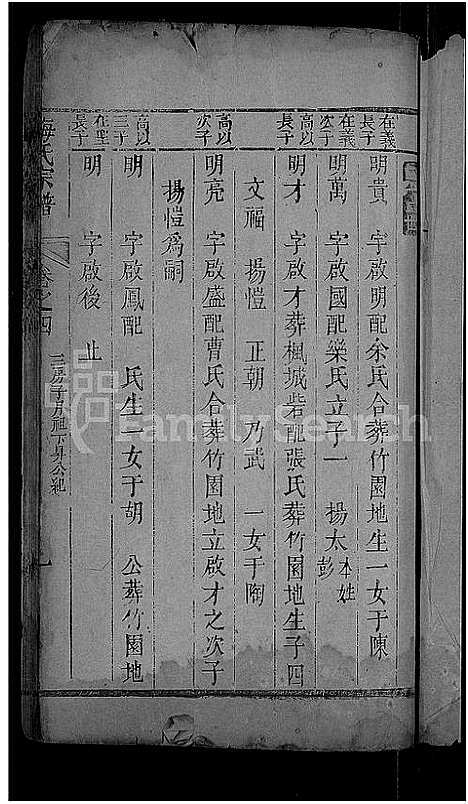 在義長子 明貴 字啟明配余氏合葬竹園地生一女于陳
在義次子 明萬 字啟國配樂氏立子一 楊太 本姓彭
高以長子 明才 字啟才葬楓城砦配張氏葬竹園地生子四
文福 揚愷 正朝 乃武 一女于陶
高以次子 明亮 字啟盛配曹氏合葬竹園地立啟才之次子
揚愷為嗣
高以三子 明 字啟鳳配 氏生一女于胡 公葬竹園地
在聖長子 明 字啟後 止
梅氏宗譜 卷之四 三房子月祖下昇公紀
FamilySearch